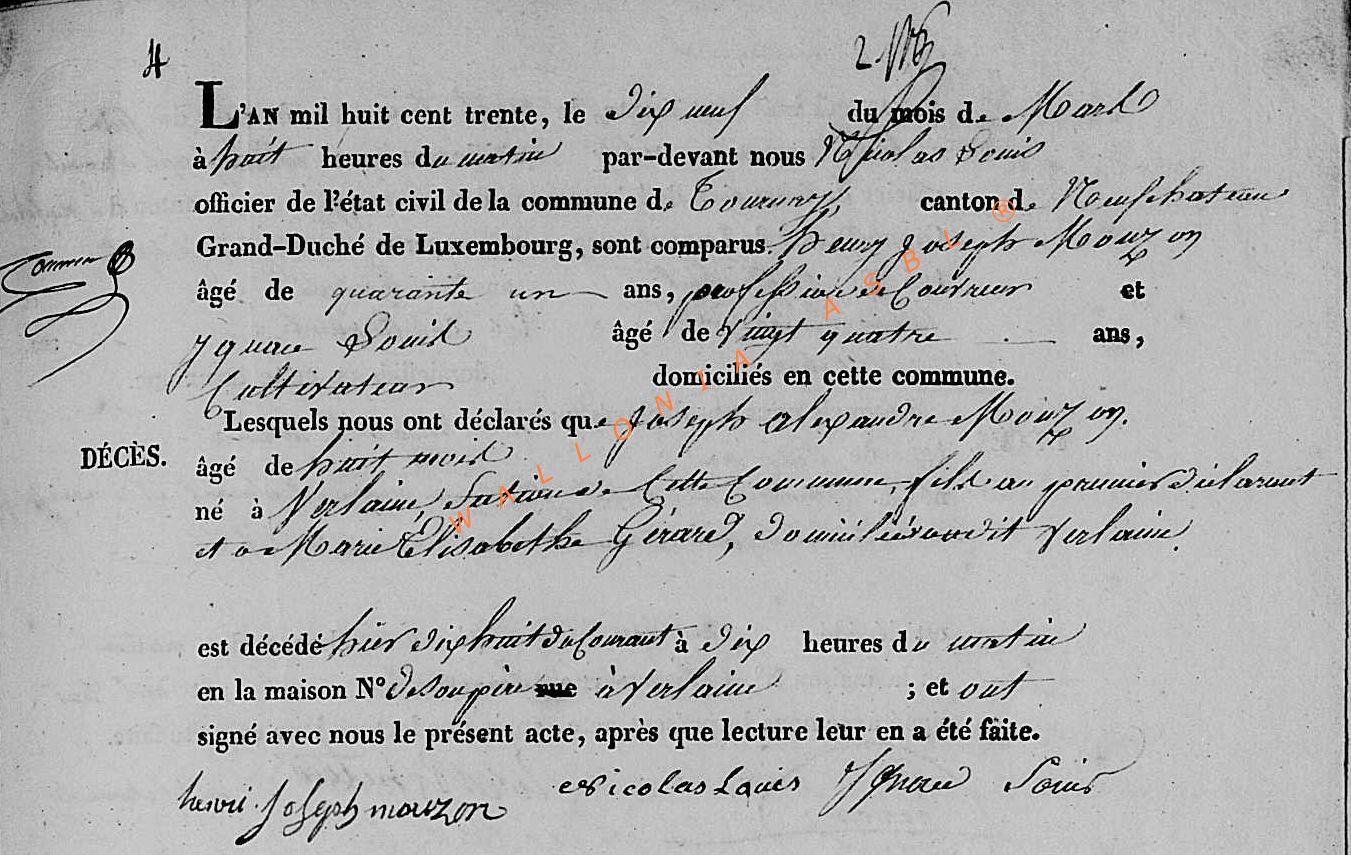 4
L'AN mil huit cent trente, le dix neuf du mois de Mars
à huit heures du matin par-devant nous Nicolas Louis
officier de l'état civil de la commune de Tournay, canton de Neufchateau
Grand-Duché de Luxembourg, sont comparus henry Joseph Mouzon
âgé de quarante un ans, profession de Couvreur et
Ignace Louis âgé de vingt quatre ans,
Cultivateur domiciliés en cette commune.
Lesquels nous ont déclarés que Joseph alexandre Mouzon.
DÉCÈS.
âgé de huit mois
né à Verlaine, Section de Cette Commune, fils au premier déclarant
et a Marie Elisabethe Gérard, domiciliés audit Verlaine.
est décédé hier dix huit du Courant à dix heures du matin
en la maison N° de son père rue à Verlaine ; et ont
signé avec nous le présent acte, après que lecture leur en a été faite.
henri Joseph mouzon Nicolas Louis Ignace Louis
WALLONIA ASBL ®